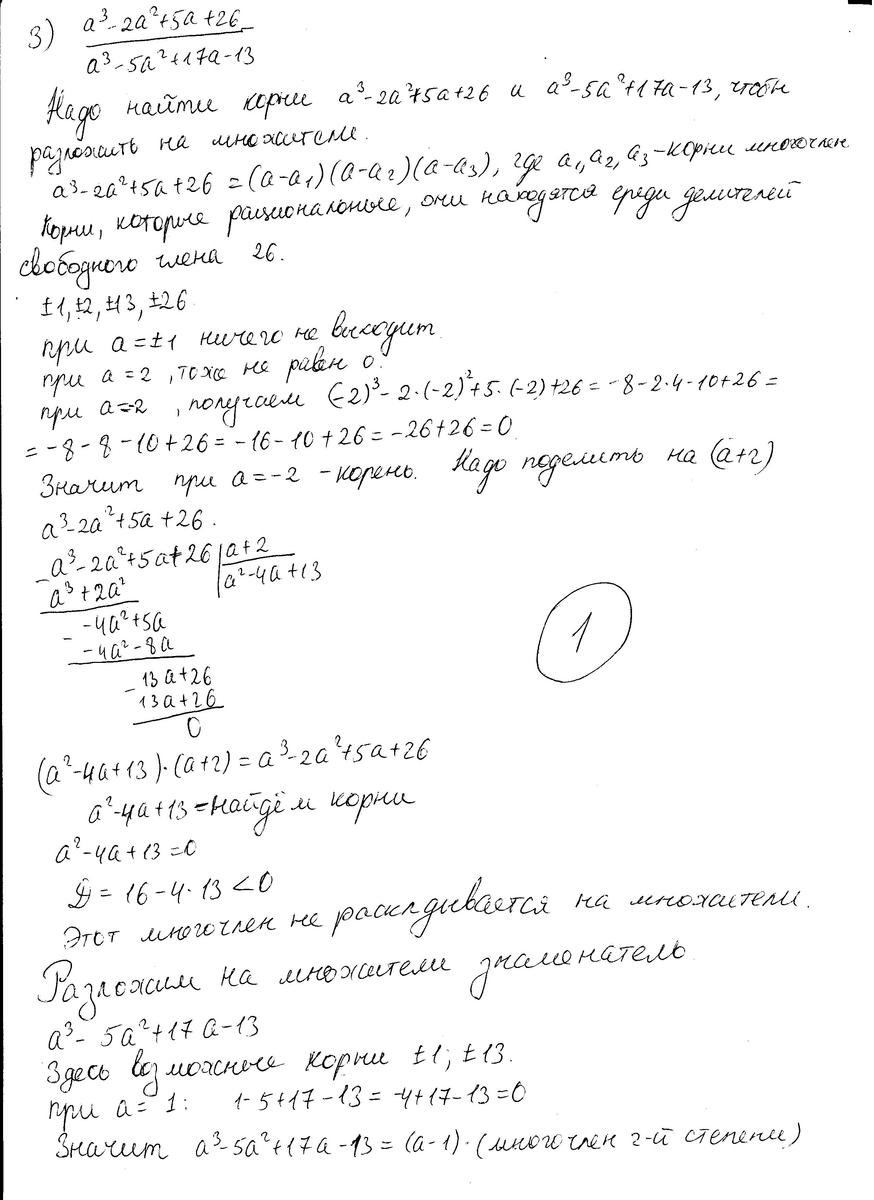 3) a³-2a²+5a+26 / a³-5a²+17a-13
Надо найти корни a³-2a²+5a+26 и a³-5a²+17a-13, чтобы
разложить на множители.
a³-2a²+5a+26 = (a-a₁)(a-a₂)(a-a₃), где a₁, a₂, a₃-корни многочлен
Корни, которые рациональные, они находятся среди делителей
свободного члена 26.
±1, ±2, ±13, ±26
при a=±1 ничего не выходит
при a=2, тоже не равен 0.
при a=-2, получаем (-2)³-2·(-2)²+5·(-2)+26 = -8-2·4-10+26 =
= -8-8-10+26 = -16-10+26 = -26+26=0
Значит при a=-2 -корень. Надо поделить на (a+2)
a³-2a²+5a+26.
- a³-2a²+5a+26 | a+2
a³+2a² | a²-4a+13
- -4a²+5a
-4a²-8a
- 13a+26
13a+26
0
1
(a²-4a+13)·(a+2) = a³-2a²+5a+26
a²-4a+13 = найдём корни
a²-4a+13=0
D = 16-4·13<0
Этот многочлен не раскладывается на множители.
Разложим на множители знаменатель
a³-5a²+17a-13
Здесь возможные корни ±1; ±13.
при a= 1: 1-5+17-13 = -4+17-13=0
Значит a³-5a²+17a-13 = (a-1)·(многочлен 2-й степени)